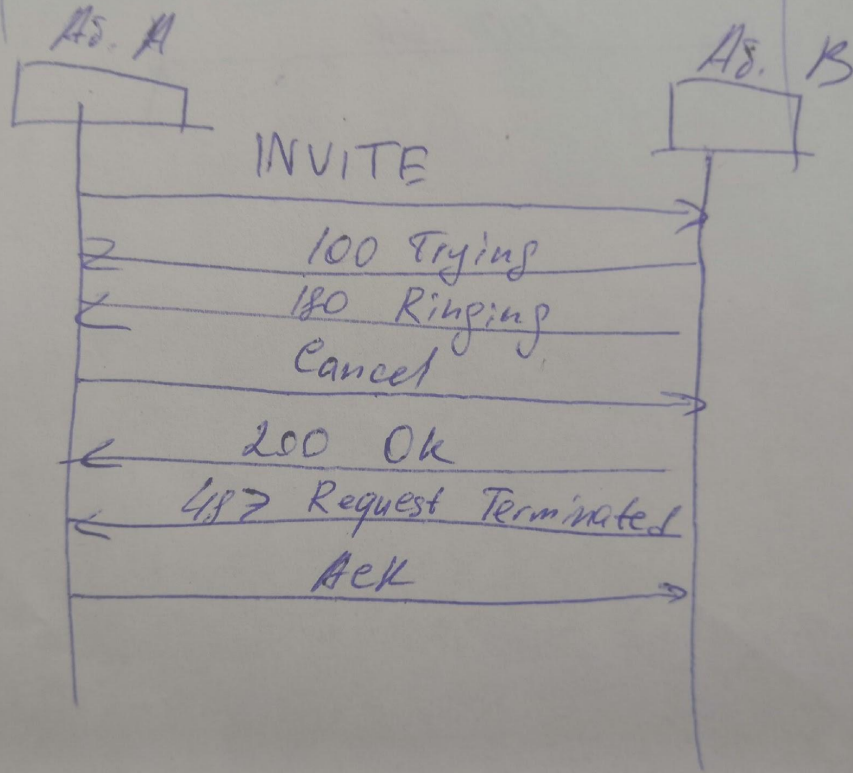 Аб. А
Аб. В
INVITE
100 Trying
180 Ringing
Cancel
200 Ok
487 Request Terminated
Ack